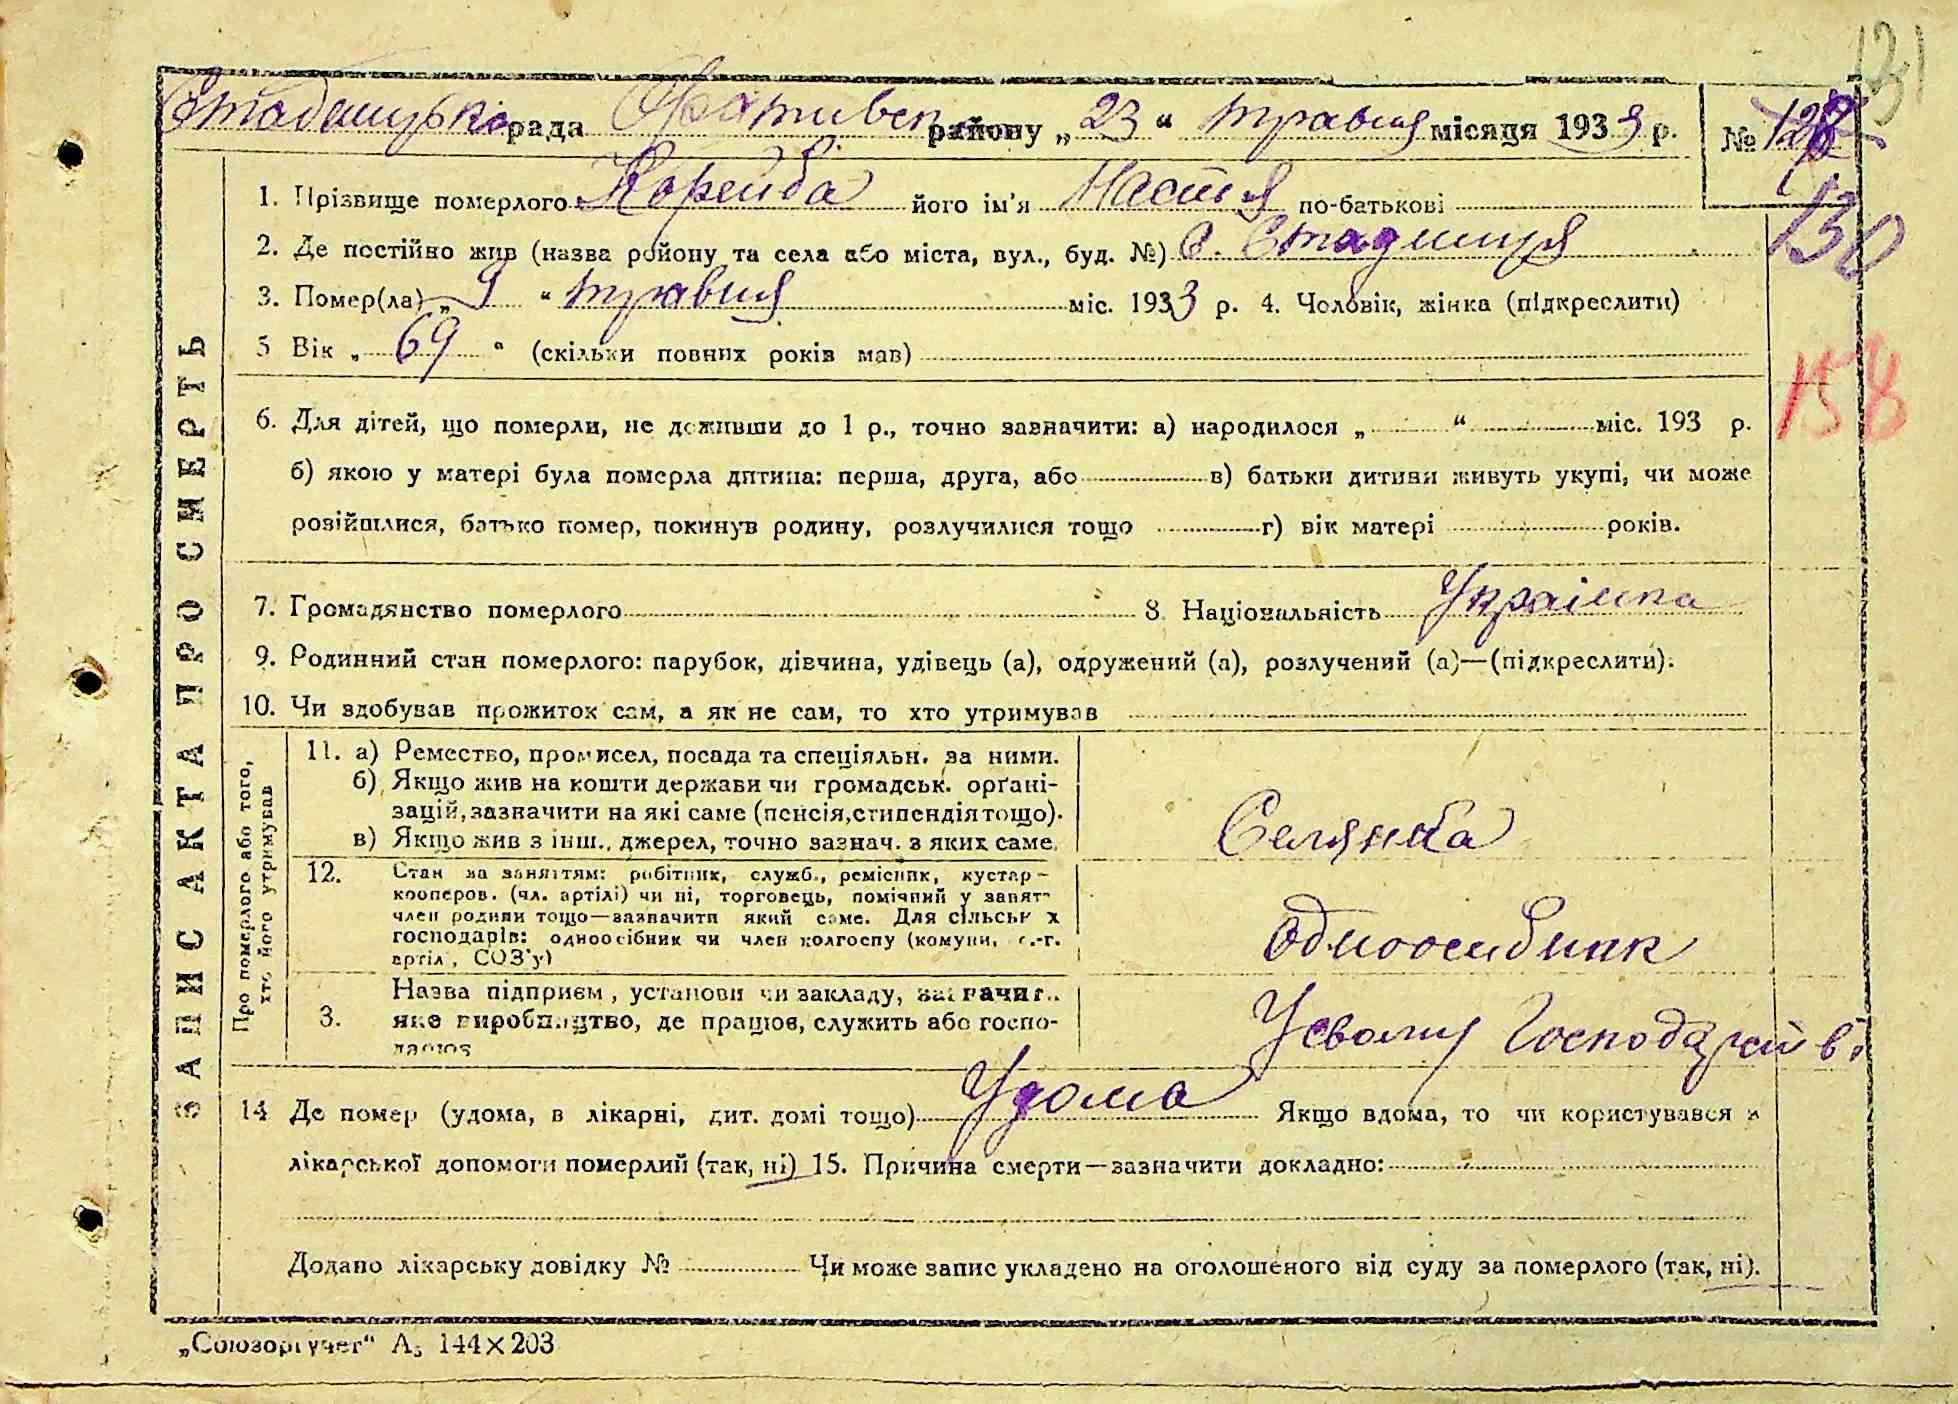 131
рада району „ 23 “ травня місяця 1933 р. №
1. Прізвище померлого Корейба його ім'я Настя по-батькові
130
2. Де постійно жив (назва району та села або міста, вул., буд. №) с. Стадниця
3. Помер(ла) „ 9 “ травня міс. 1933 р. 4. Чоловік, жінка (підкреслити)
5 Вік „ 69 “ (скільки повних років мав)
158
6. Для дітей, що померли, не доживши до 1 р., точно зазначити: а) народилося „ “ міс. 193 р.
б) якою у матері була померла дитина: перша, друга, або в) батьки дитини живуть укупі, чи може
розійшлися, батько помер, покинув родину, розлучилися тощо г) вік матері років.
7. Громадянство померлого 8. Національність Українка
9. Родинний стан померлого: парубок, дівчина, удівець (а), одружений (а), розлучений (а)—(підкреслити).
10. Чи здобував прожиток сам, а як не сам, то хто утримував
ЗАПИС АКТА ПРО СМЕРТЬ
Про померлого або того,
хто його утримував
11. а) Ремество, промисел, посада та спеціяльн. за ними.
б) Якщо жив на кошти держави чи громадськ. орґані-
зацій, зазначити на які саме (пенсія, стипендія тощо).
в) Якщо жив з інш., джерел, точно зазнач. з яких саме.
Селянка
12. Стан за заняттям: робітник, служб., ремісник, кустар-
кооперов. (чл. артілі) чи ні, торговець, помічний у занят-
член родини тощо—зазначити який саме. Для сільськ х
господарів: одноосібник чи член колгоспу (комуни, с.-г.
артіл , СОЗ'у)
одноосибник
Назва підприєм , установи чи закладу, зазначит
3. яке виробництво, де працює, служить або госпо-
дарює
Усвому Господарстві
14 Де помер (удома, в лікарні, дит. домі тощо) Удома Якщо вдома, то чи користувався з
лікарської допомоги померлий (так, ні) 15. Причина смерти—зазначити докладно:
Додано лікарську довідку № Чи може запис укладено на оголошеного від суду за померлого (так, ні).
„Союзоргучет“ А5 144×203